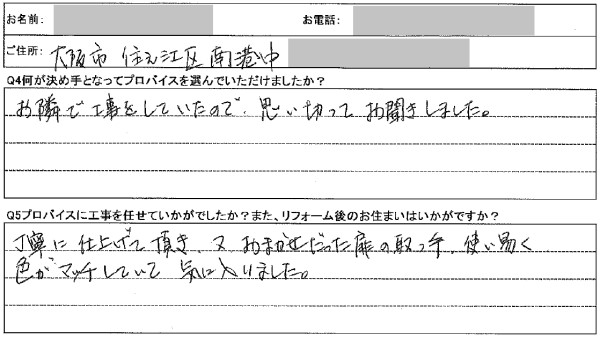 お名前： お電話：
ご住所： 大阪市 住之江区 南港中
Q4何が決め手となってプロバイスを選んでいただけましたか？
お隣で工事をしていたので、思い切ってお聞きしました。
Q5プロバイスに工事を任せていかがでしたか？また、リフォーム後のお住まいはいかがですか？
丁寧に仕上げて頂き、又おまかせだった扉の取っ手、使い易く
色がマッチしていて気に入りました。